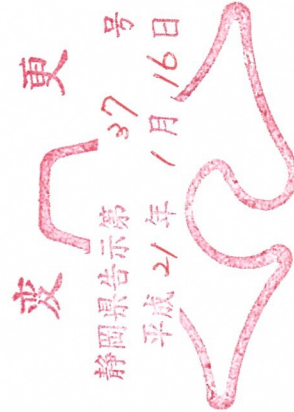 変更
静岡県告示第37号
平成21年1月16日